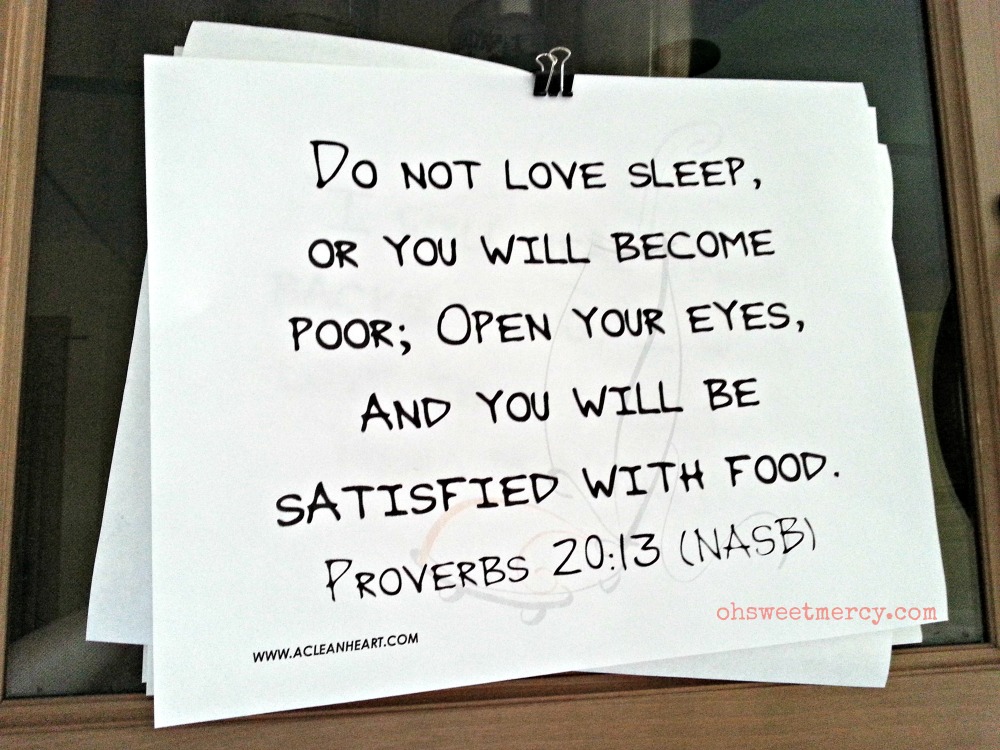 Do not love sleep,
or you will become
poor; Open your eyes,
And you will be
satisfied with food.
Proverbs 20:13 (NASB)
ohsweetmercy.com
www.acleanheart.com